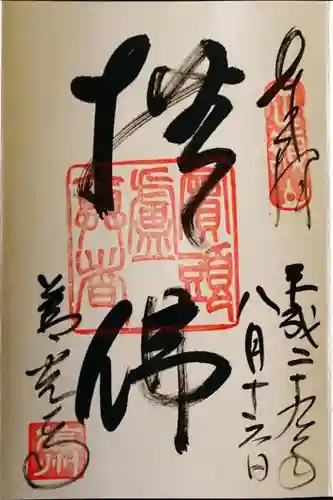 平成二十九年
八月十六日
撫佛
賓頭
盧
尊者
善光寺